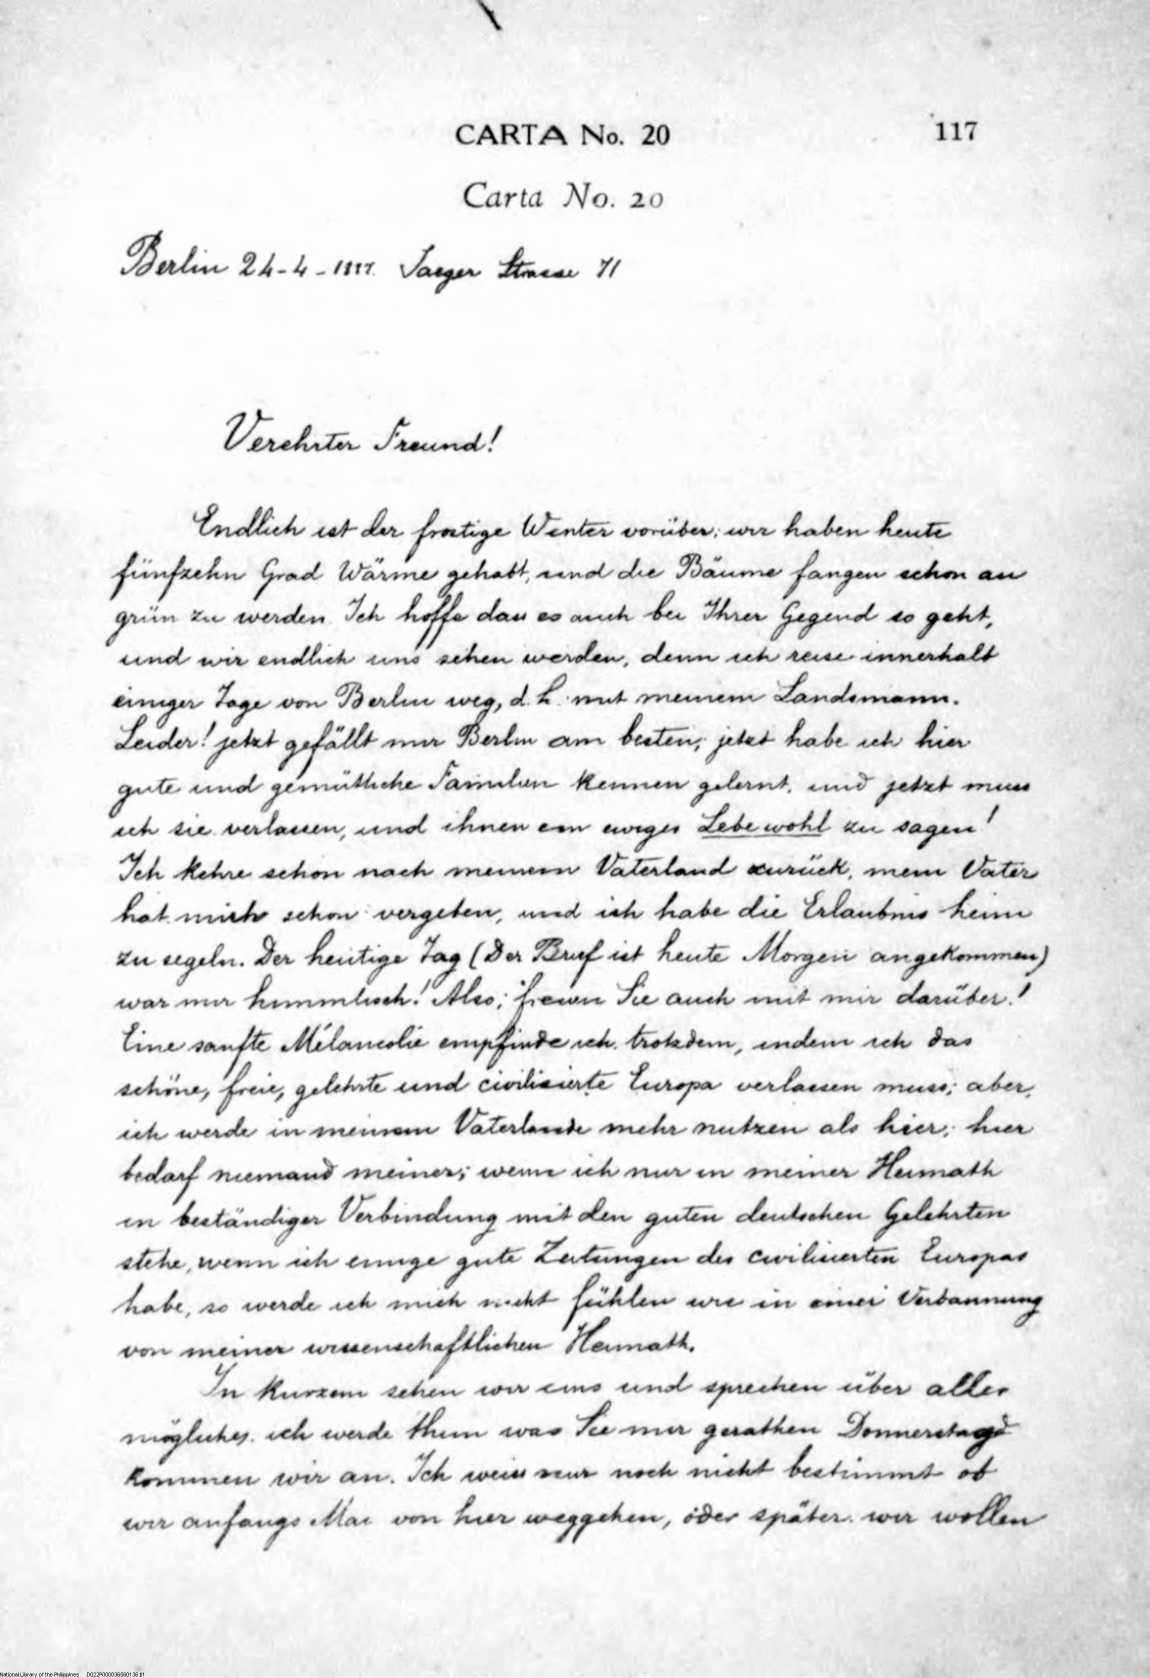 CARTA No. 20
117
Carta No. 20
Berlin 24-4-1887. Jaeger Strasse 71
Verehrter Freund!
Endlich ist der frostige Winter vorüber: wir haben heute
fünfzehn Grad Wärme gehabt, und die Bäume fangen schon an
grün zu werden. Ich hoffe dass es auch bei Ihrer Gegend so geht,
und wir endlich uns sehen werden, denn ich reise innerhalb
einiger Tage von Berlin weg, d. h. mit meinem Landsmann.
Leider! jetzt gefällt mir Berlin am besten; jetzt habe ich hier
gute und gemütliche Familien kennen gelernt, und jetzt muss
ich sie verlassen, und ihnen ein ewiges Lebewohl zu sagen!
Ich kehre schon nach meinem Vaterland zurück, mein Vater
hat mich schon vergeben, und ich habe die Erlaubnis heim
zu segeln. Der heutige Tag (Der Brief ist heute Morgen angekommen)
war mir himmlisch! Also; freuen Sie auch mit mir darüber!
Eine sanfte Mélancolie empfinde ich trotzdem, indem ich das
schöne, freie, gelehrte und civilisierte Europa verlassen muss; aber,
ich werde in meinem Vaterlande mehr nutzen als hier; hier
bedarf niemand meiner; wenn ich nur in meiner Heimath
in beständiger Verbindung mit den guten deutschen Gelehrten
stehe, wenn ich einige gute Zeitungen des civilisierten Europas
habe, so werde ich mich nicht fühlen wie in einer Verbannung
von meiner wissenschaftlichen Heimath.
In kurzem sehen wir uns und sprechen über alles
mögliches. ich werde thun was Sie mir gerathen Donnerstags
kommen wir an. Ich weiss nur noch nicht bestimmt ob
wir anfangs Mai von hier weggehen, oder später. wir wollen
National Library of the Philippines